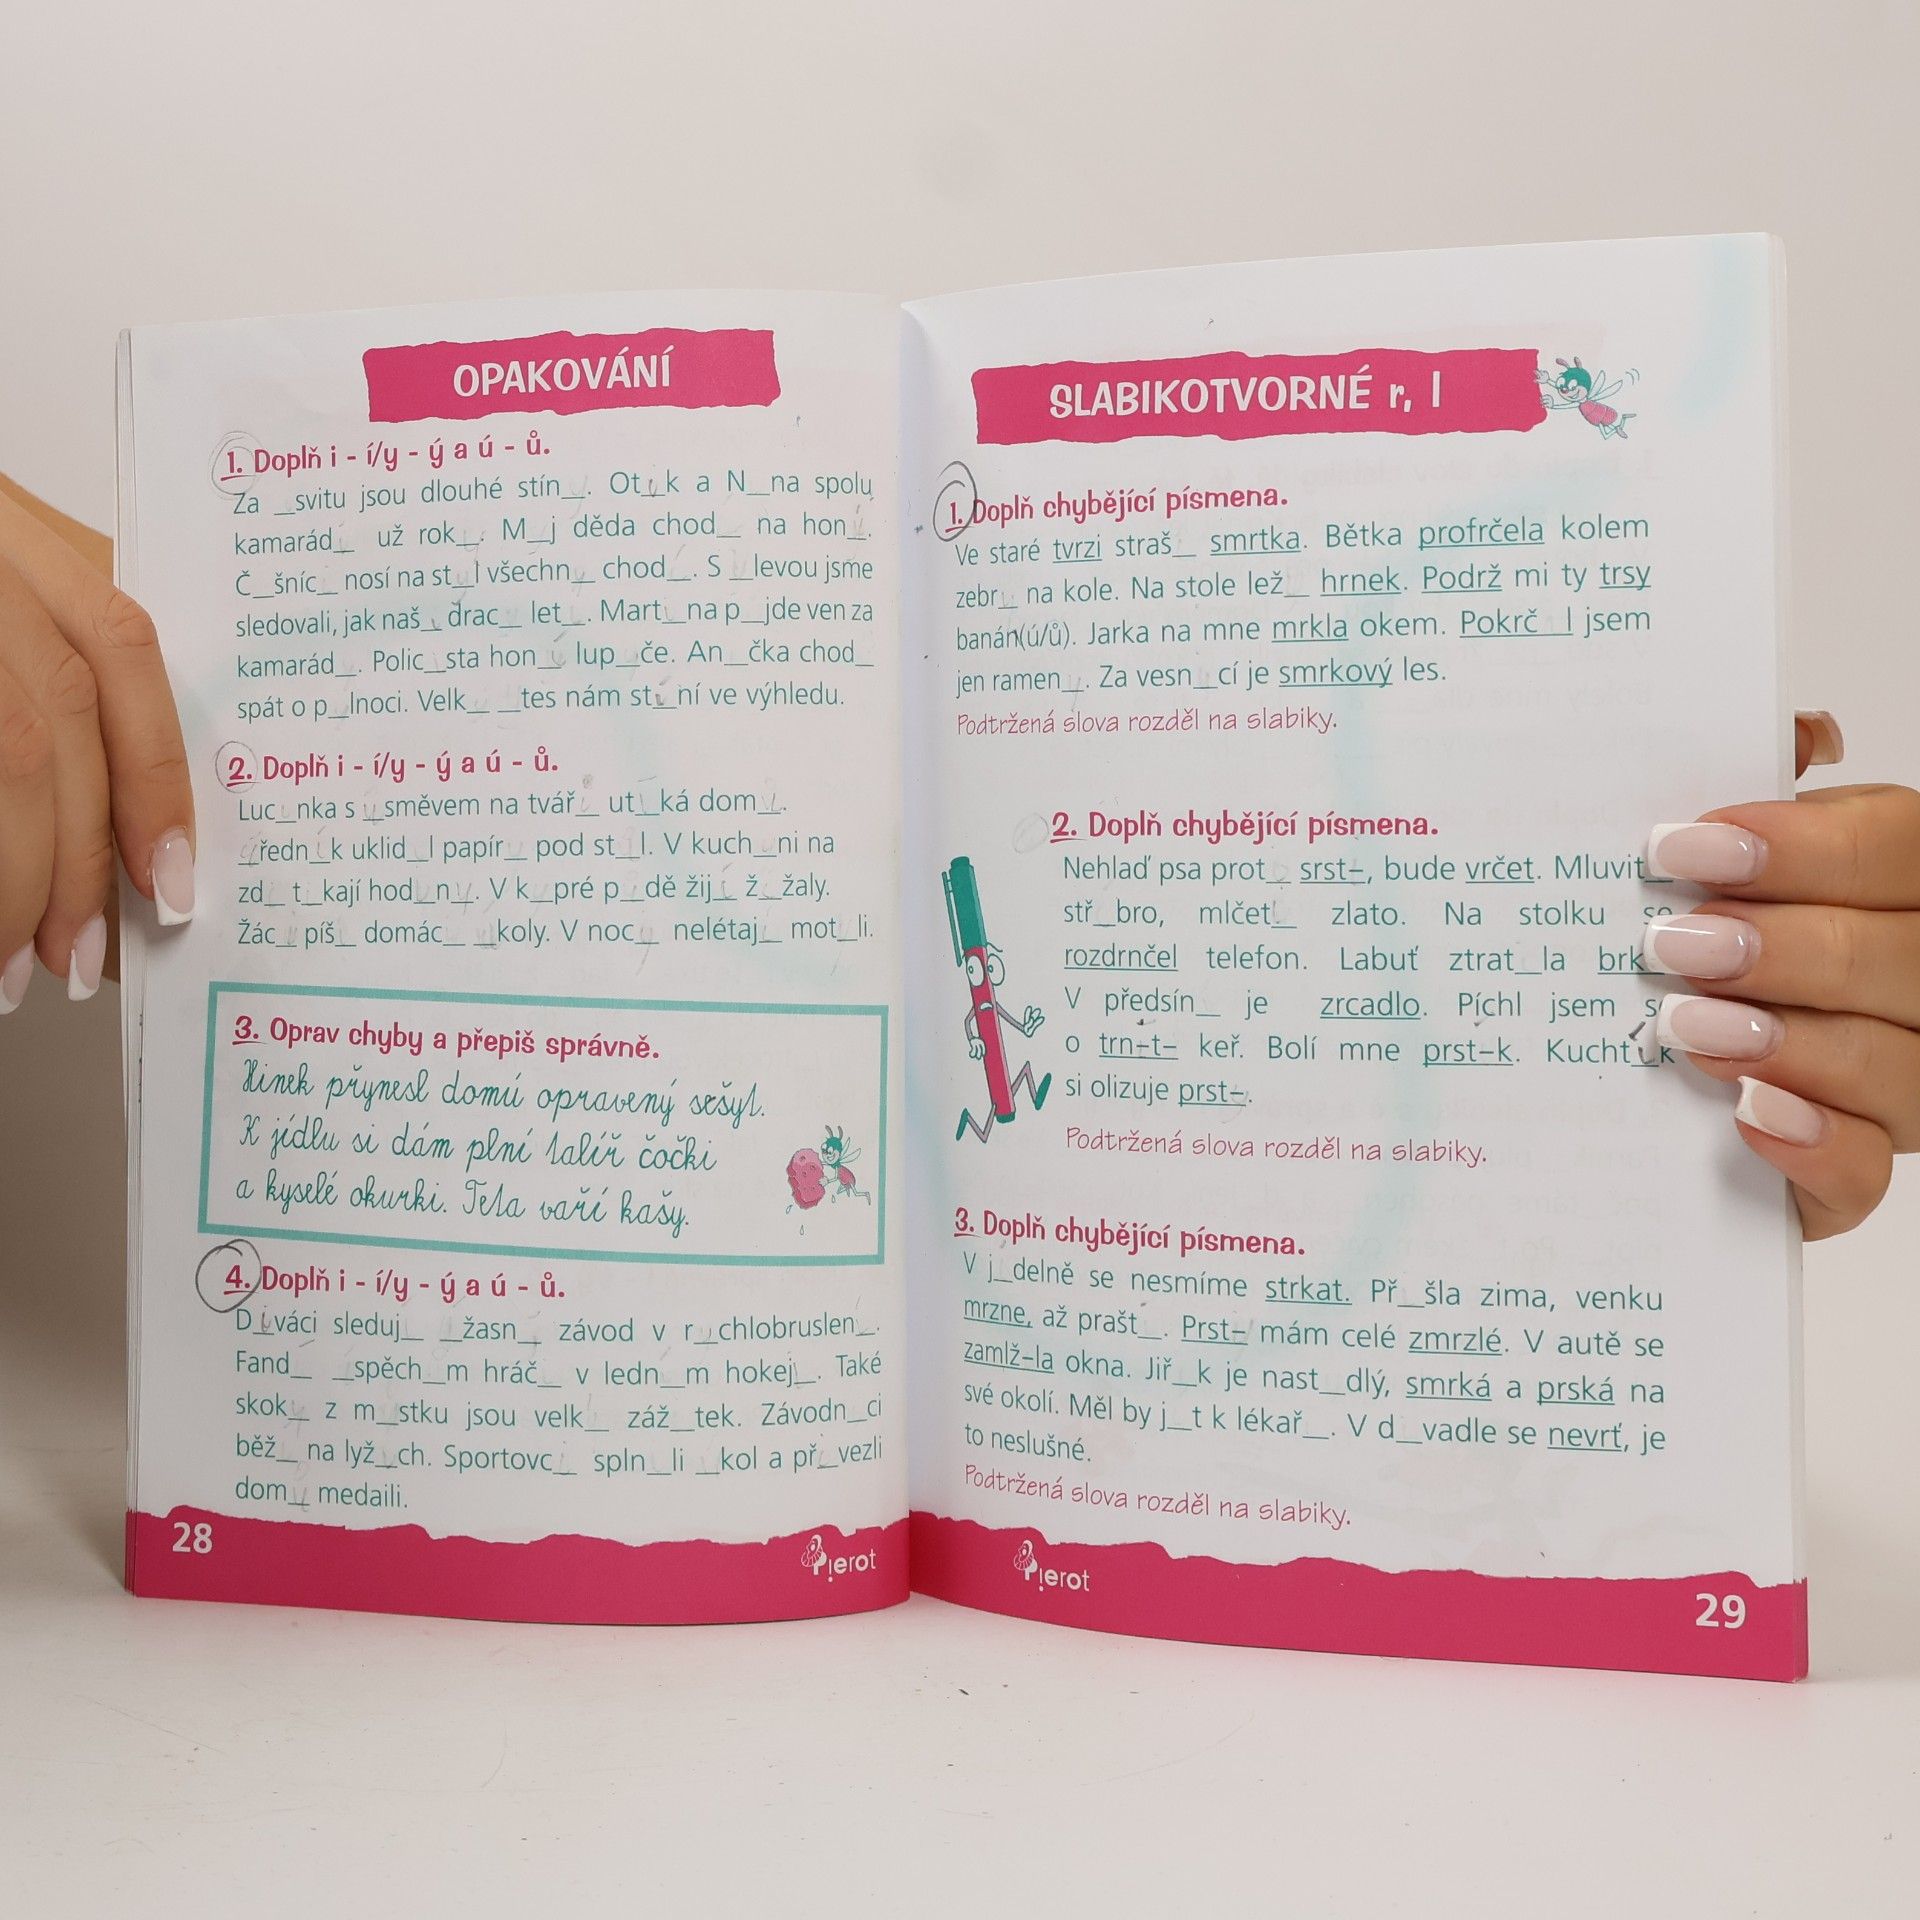 OPAKOVÁNÍ
1. Doplň i - í/y - ý a ú - ů.
Za _svitu jsou dlouhé stín_. Ot_k a N_na spolu
kamarád_ už rok_. M_j děda chod_ na hon_.
Č_šníc_ nosí na st_l všechn_ chod_. S _levou jsme
sledovali, jak naš_ drac_ let_. Mart_na p_jde ven za
kamarád_. Polic_sta hon_ lup_če. An_čka chod_
spát o p_lnoci. Velk_ _tes nám st_ní ve výhledu.
2. Doplň i - í/y - ý a ú - ů.
Luc_nka s _směvem na tvář_ ut_ká dom_.
_ředn_k uklid_l papír_ pod st_l. V kuch_ni na
zd_ t_kají hod_n_. V k_pré p_dě žij_ ž_žaly.
Žác_ píš_ domác_ _koly. V noc_ nelétaj_ mot_li.
3. Oprav chyby a přepiš správně.
Hinek přynesl domú opravený sešyt.
K jídlu si dám plní talíř čočki
a kyselé okurki. Teta vaří kašy.
4. Doplň i - í/y - ý a ú - ů.
D_váci sleduj_ _žasn_ závod v r_chlobruslen_.
Fand_ _spěch_m hráč_ v ledn_m hokej_. Také
skok_ z m_stku jsou velk_ záž_tek. Závodn_ci
běž_ na lyž_ch. Sportovc_ spln_li _kol a př_vezli
dom_ medaili.
28
Pierot
SLABIKOTVORNÉ r, l
1. Doplň chybějící písmena.
Ve staré tvrzi straš_ smrtka. Bětka profrčela kolem
zebr_ na kole. Na stole lež_ hrnek. Podrž mi ty trsy
banán(ú/ů). Jarka na mne mrkla okem. Pokrč_l jsem
jen ramen_. Za vesn_cí je smrkový les.
Podtržená slova rozděl na slabiky.
2. Doplň chybějící písmena.
Nehlaď psa prot_ srst_, bude vrčet. Mluvit_
stř_bro, mlčet_ zlato. Na stolku se
rozdrnčel telefon. Labuť ztrat_la brk_
V předsín_ je zrcadlo. Píchl jsem se
o trn_t_ keř. Bolí mne prst_k. Kucht_k
si olizuje prst_.
Podtržená slova rozděl na slabiky.
3. Doplň chybějící písmena.
V j_delně se nesmíme strkat. Př_šla zima, venku
mrzne, až prašt_. Prst_ mám celé zmrzlé. V autě se
zamlž_la okna. Jiř_k je nast_dlý, smrká a prská na
své okolí. Měl by j_t k lékař_. V d_vadle se nevrť, je
to neslušné.
Podtržená slova rozděl na slabiky.
Pierot
29